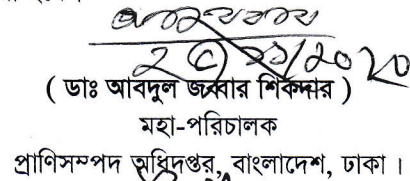 ( ডাঃ আবদুল জব্বার শিকদার )
মহা-পরিচালক
প্রাণিসম্পদ অধিদপ্তর, বাংলাদেশ, ঢাকা ।